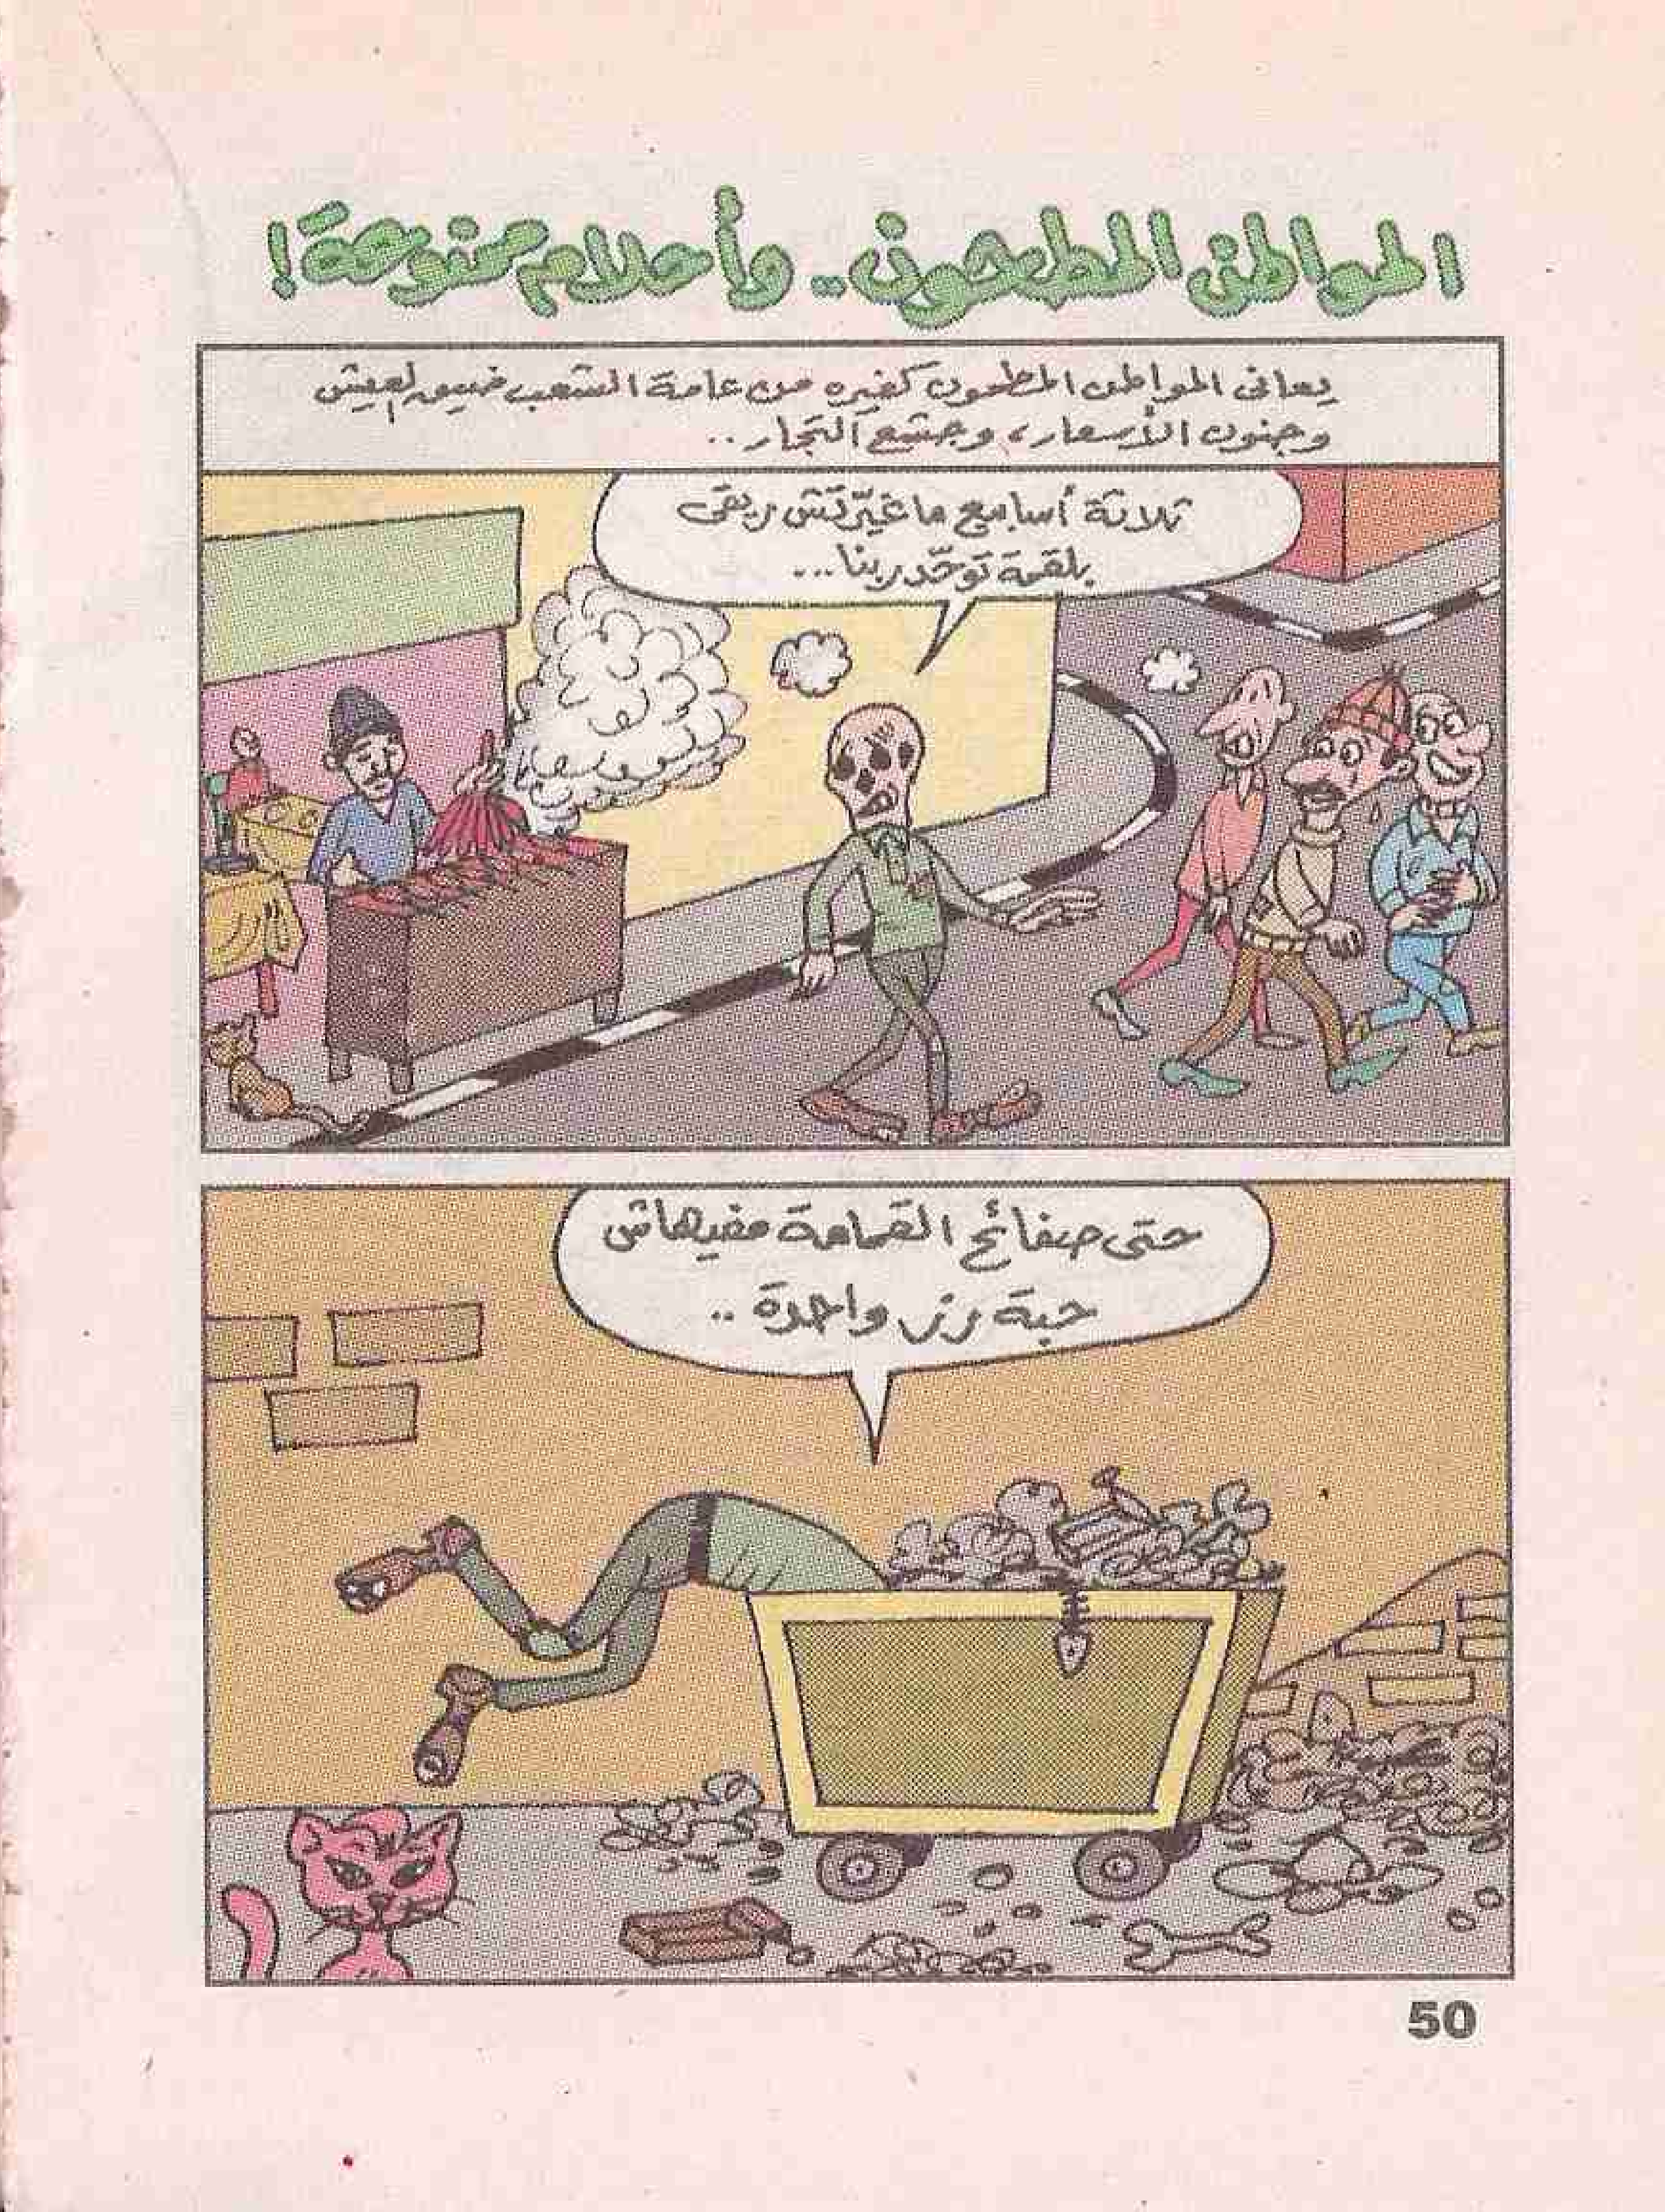 المواطن المطحون.. وأحلام ممنوعة!
يعانى المواطن المطحون كغيره من عامة الشعب ضيق العيش
وجنون الأسعار، وجشع التجار..
ثلاثة أسابيع ما غيّرتش ريقى
بلقمة توحّد ربنا...
حتى صفائح القمامة مفيهاش
حبة رز واحدة..
50